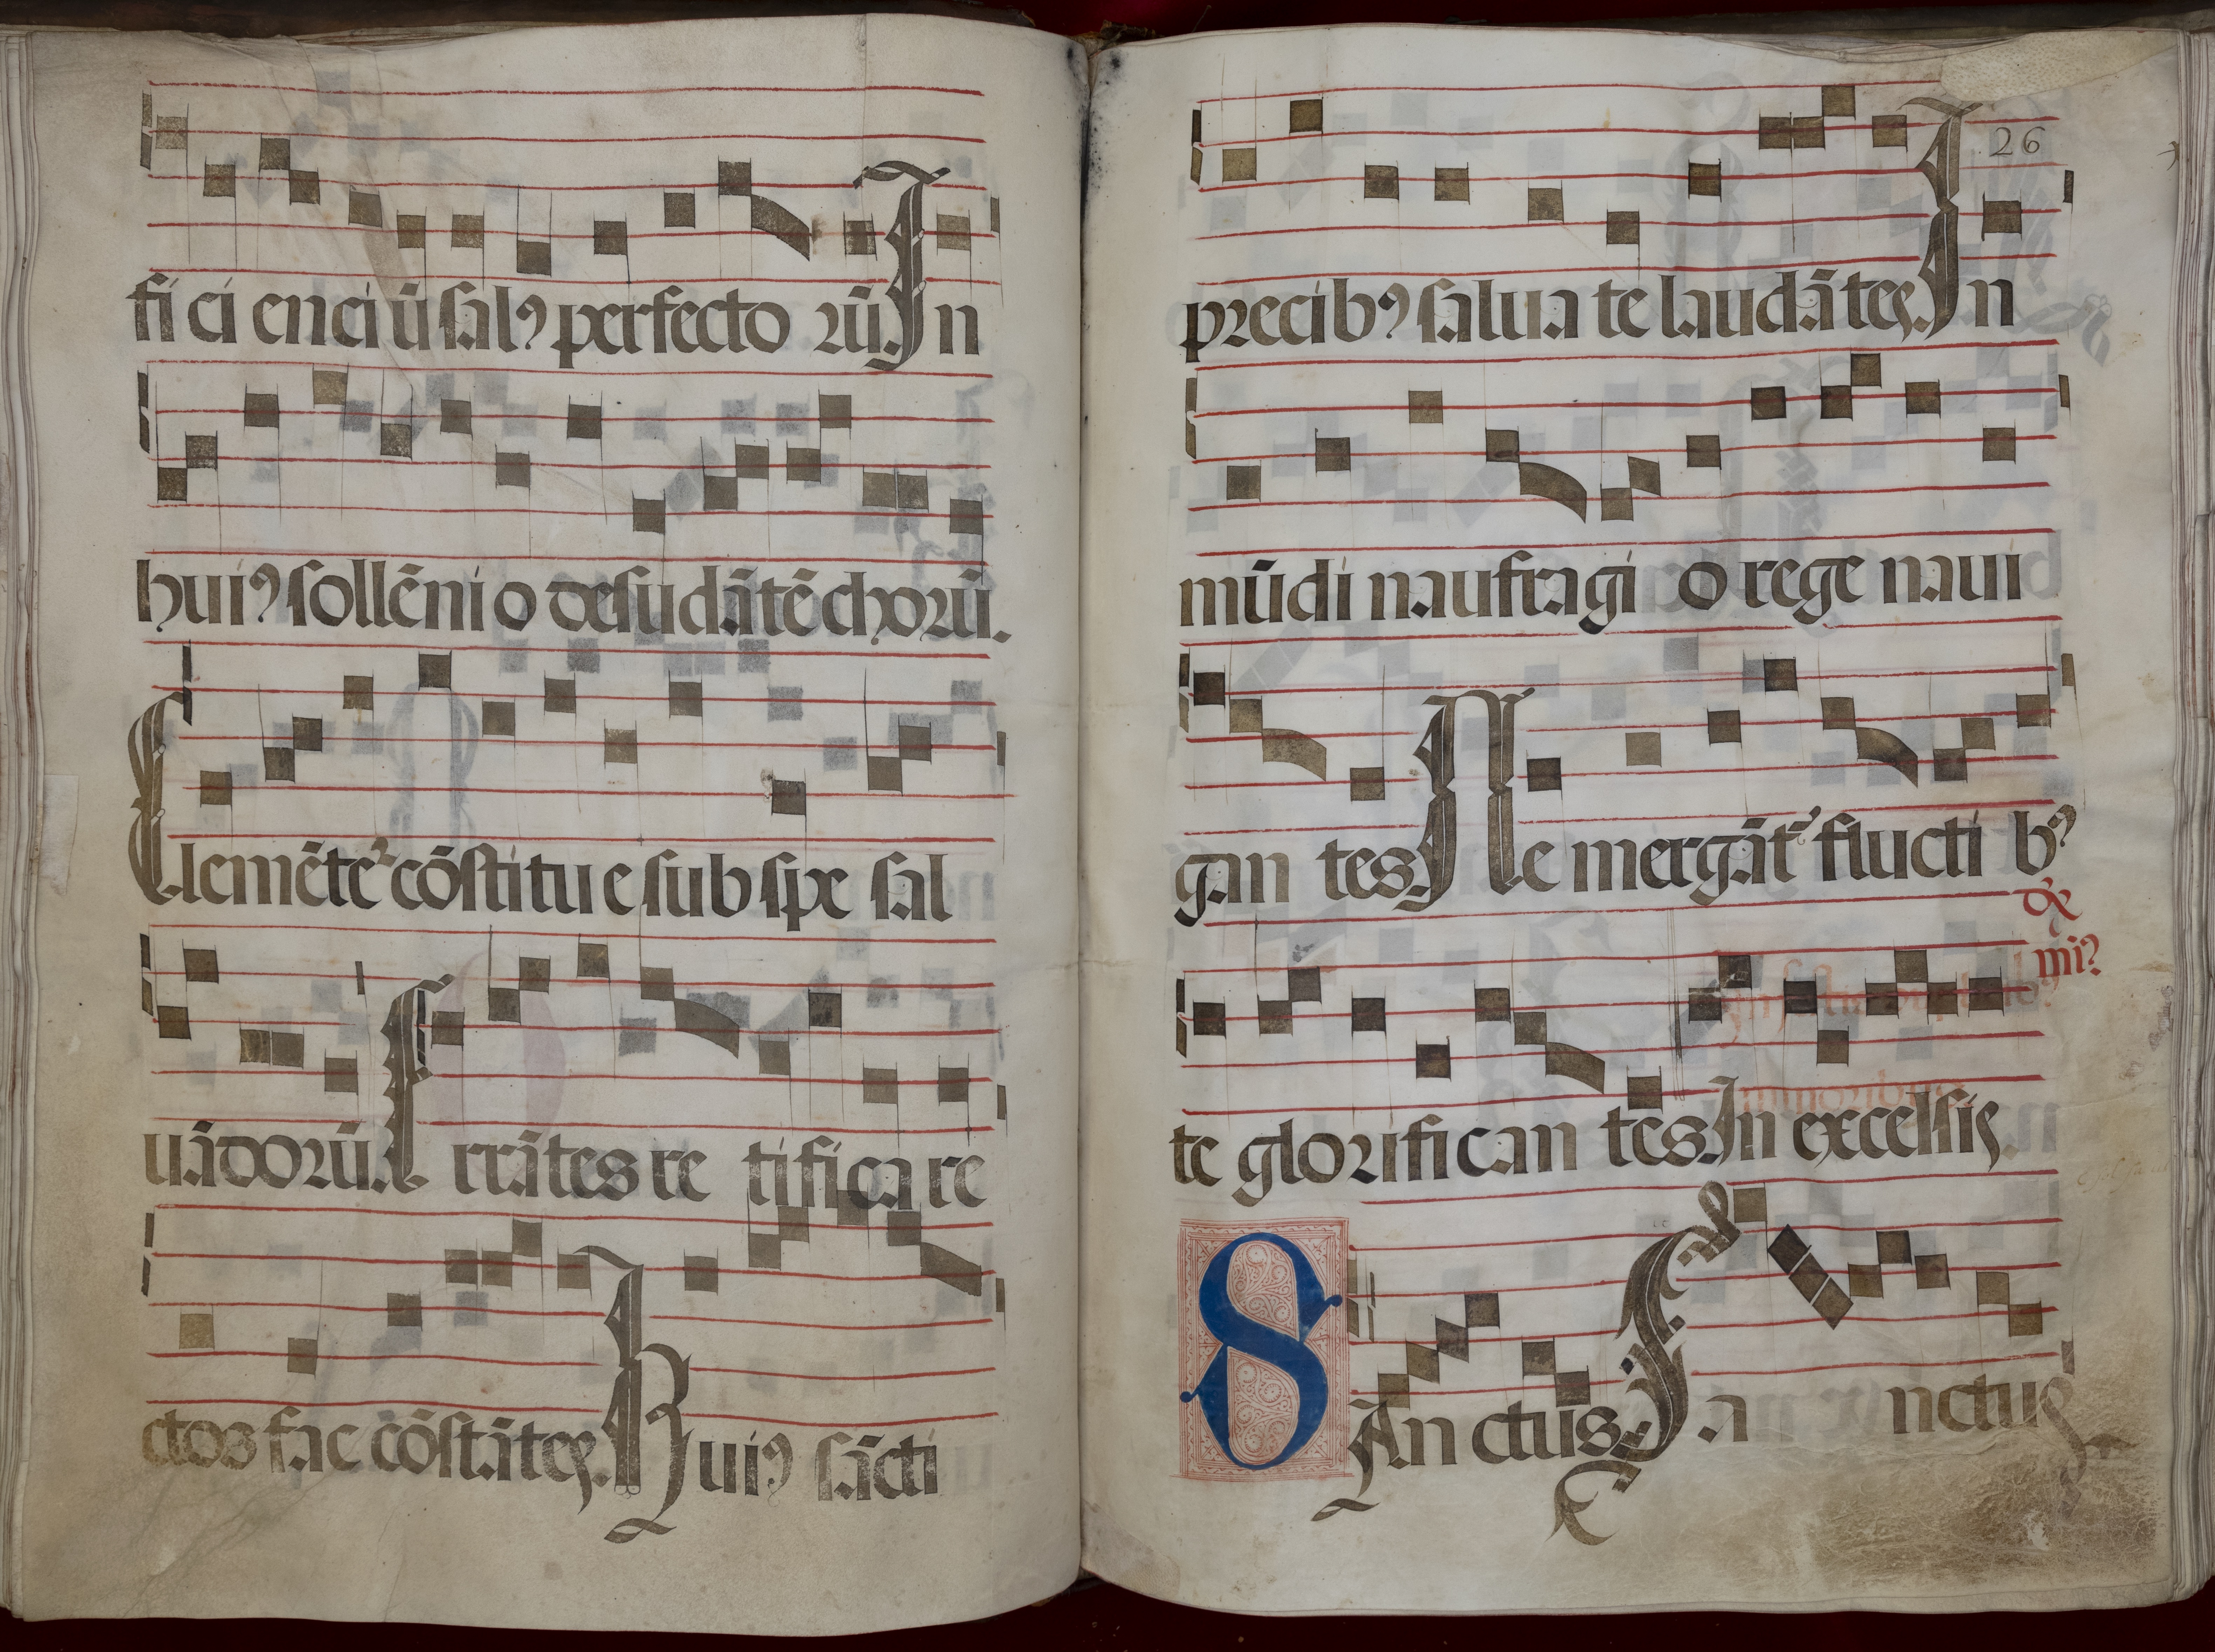 fi ci enci ū salꝰ perfecto rū. In
huiꝰ sollēni o desudātē chorū.
Clemēte͛ cōstitu e sub spe sal
uādorū. Errātes re tifica re
ctos fac cōstātes. Huiꝰ sācti
26
precibꝰ salua te laudātes. In
mūdi naufragi o rege naui
gan tes. Ne mergāt᷑ flucti bꝰ
te glorifican tes. In excelsis.
SAn ctus. Sa nctus